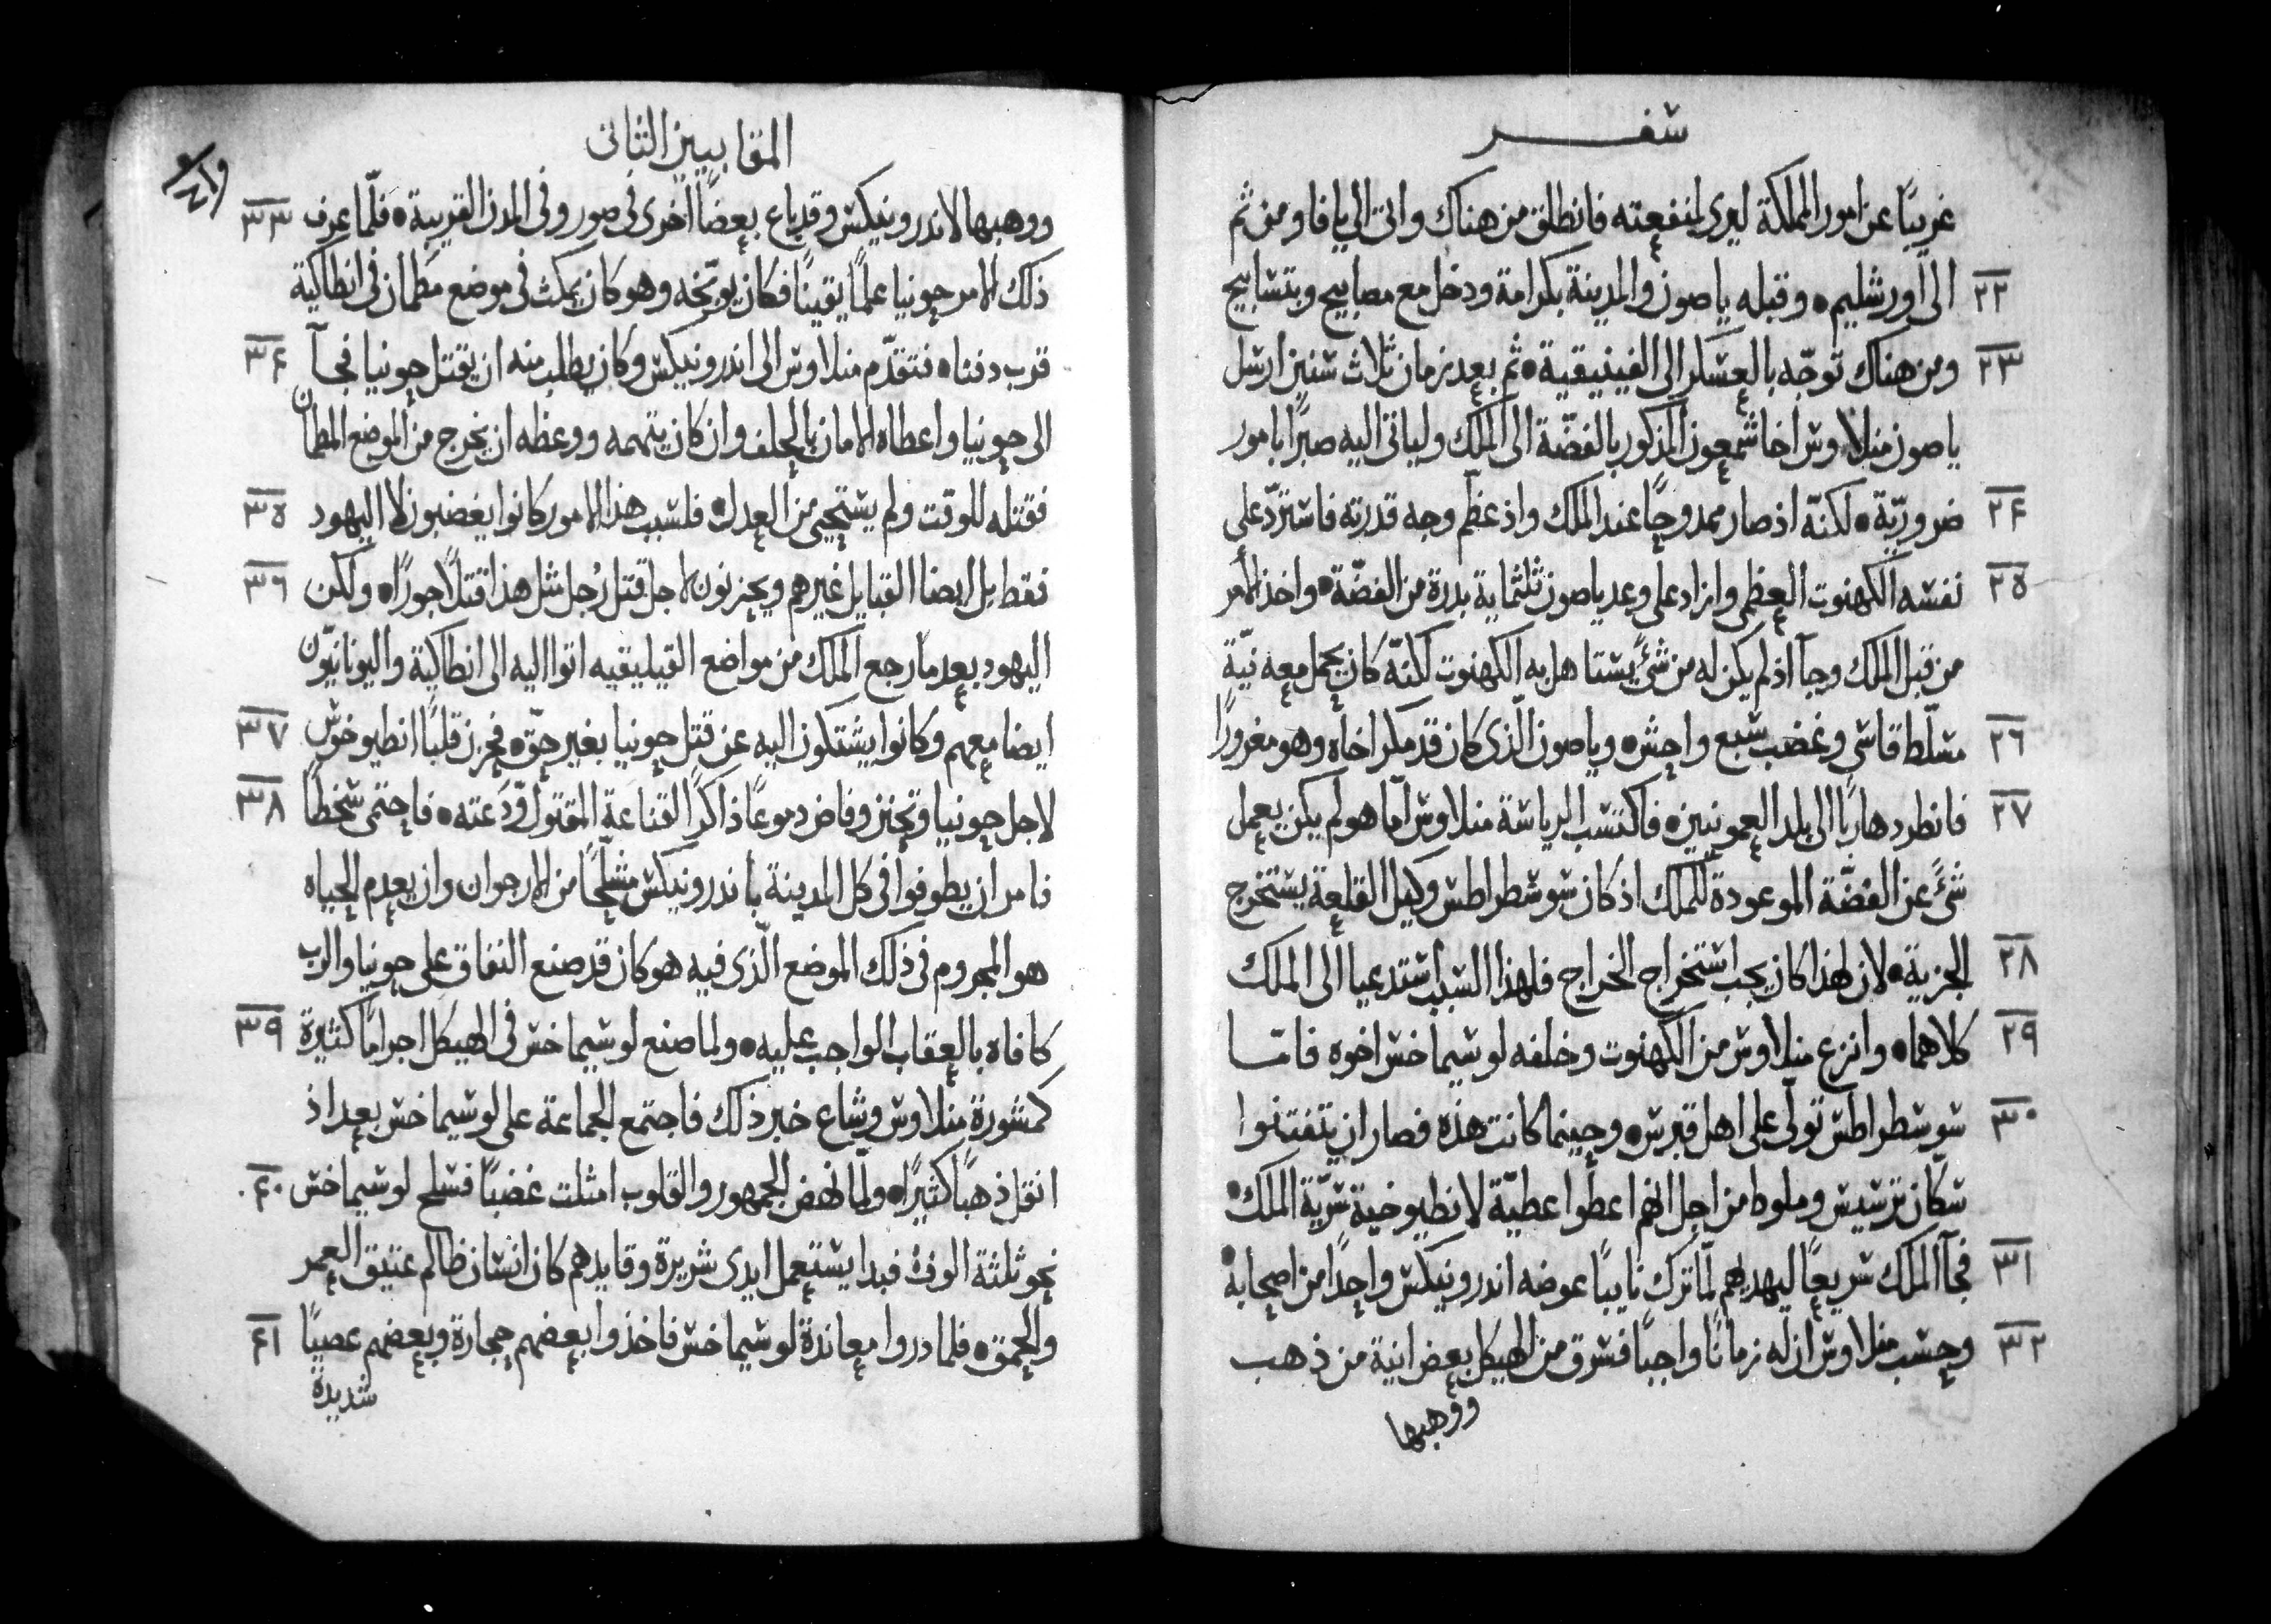 سفر
غريبًا عن امور المملكة ليرى لمنفعته فانطلق من هناك واتى الى يافا ومن ثم
٢٢ الى اورشليم • وقبله ياصون والمدينة بكرامة ودخل مع مصابيح وبتسابيح
٢٣ ومن هناك توجّه بالعسكر الى الفينيقية • ثم بعد زمان ثلاث سنين ارسل
ياصون منلاوس اخا شمعون المذكور بالفضّة الى الملك ولياتى اليه صبرًا بامور
٢٤ ضروريّة • لكنّه اذ صار ممدوحًا عند الملك واذ عظّم وجه قدرته فاسترد على
٢٥ نفسه الكهنوت العظمى وازاد على وعد ياصون ثلثماية بدرة من الفضّة • واخذ الامر
من قبل الملك وجآ اذ لم يكن له من شئً يستاهل به الكهنوت لكنّه كان يحمل معه نيّة
٢٦ مسلّط قاسى وغضب سبع واحش • وياصون الّذى كان قد مكر اخاه وهو مغرورًا
٢٧ فانطرد هاربًا الى بلد العمونيين • فاكتسب الرياسة منلاوس امّا هو لم يكن يعمل
شئً عن الفضّة الموعودة للملك اذ كان سوسطراطس وكيل القلعة يستخرج
٢٨ الجزية • لان لهذا كان يجب استخراج الخراج فلهذا السبب استدعيا الى الملك
٢٩ كلاهما • وانزع منلاوس من الكهنوت وخلفه لوسيماخس اخوه فامّا
٣٠ سوسطراطس تولّى على اهل قبرس • وحينما كانت هذه فصار ان يتفتنوا
سكّان ترسيس وملوط من اجل انهم اعطوا عطيّة لانطيوخية سريّة الملك •
٣١ فجآ الملك سريعًا ليهديهم لمّا ترك نايبًا عوضه اندرونيكس واحدًا من اصحابه •
٣٢ وحسب منلاوس ان له زمانًا واجبًا فسرق من الهيكل بعض انية من ذهب
ووهبها
المقابيين الثانى
ووهبها لاندرونيكس وقد باع بعضًا اخرى فى صور وفى المدن القريبة • فلّما عرف ٣٣
ذلك الامر حونيا علمًا يقينًا فكان يوبّخه وهو كان يمكث فى موضع مطمان فى انطاكية
قرب دفنا • فتقدّم منلاوس الى اندرونيكس وكان يطلب منه ان يقتل حونيا فجآ ٣٤
الى حونيا واعطاه الامان بالحلف وان كان يتهمه ووعظه ان يخرج من الموضع المطمان
فقتله للوقت ولم يستحيى من العدل • فلسبب هذا الامور كانوا يغضبون لا اليهود ٣٥
فقط بل ايضا القبايل غيرهم ويحزنون لاجل قتل رُجل مثل هذا قتلًا جورًا • ولكن ٣٦
اليهود بعد ما رجع الملك من مواضع القيليقيه اتوا اليه الى انطاكية واليونانيّون
ايضا معهم وكانوا يشتكون اليه عن قتل حونيا بغير حقّ • فحزن قلبًا انطيوخوس ٣٧
لاجل حونيا وتحنن وفاض دموعًا ذاكرًا القناعة المقتول وّدَعته • فاحتمى سخطًا ٣٨
فامر ان يطوفوا فى كل المدينة باندرونيكس مشلّحًا من الارجوان وان يعدم الحياه
هو المجروم فى ذلك الموضع الّذى فيه هو كان قد صنع النفاق على حونيا والرب
كافاه بالعقاب الواجب عليه • ولما صنع لوسيماخس فى الهيكل اجرامًا كثيرة ٣٩
كمشورة منلاوس وشاع خبر ذلك فاجتمع الجماعة على لوسيماخس بعد اذ
انقل ذهبًا كثيرًا • ولمّا نهض الجمهور والقلوب امثلت غضبًا فسلح لوسيماخس ٤٠
نحو ثلثة الوف فبدا يستعمل ايدى شريرة وقايدهم كان انسان ظالم عتيق العمر
والحمق • فلما دروا معاندة لوسيماخس فاخذوا بعضهم حجارة وبعضهم عصيًا ٤١
شديدة